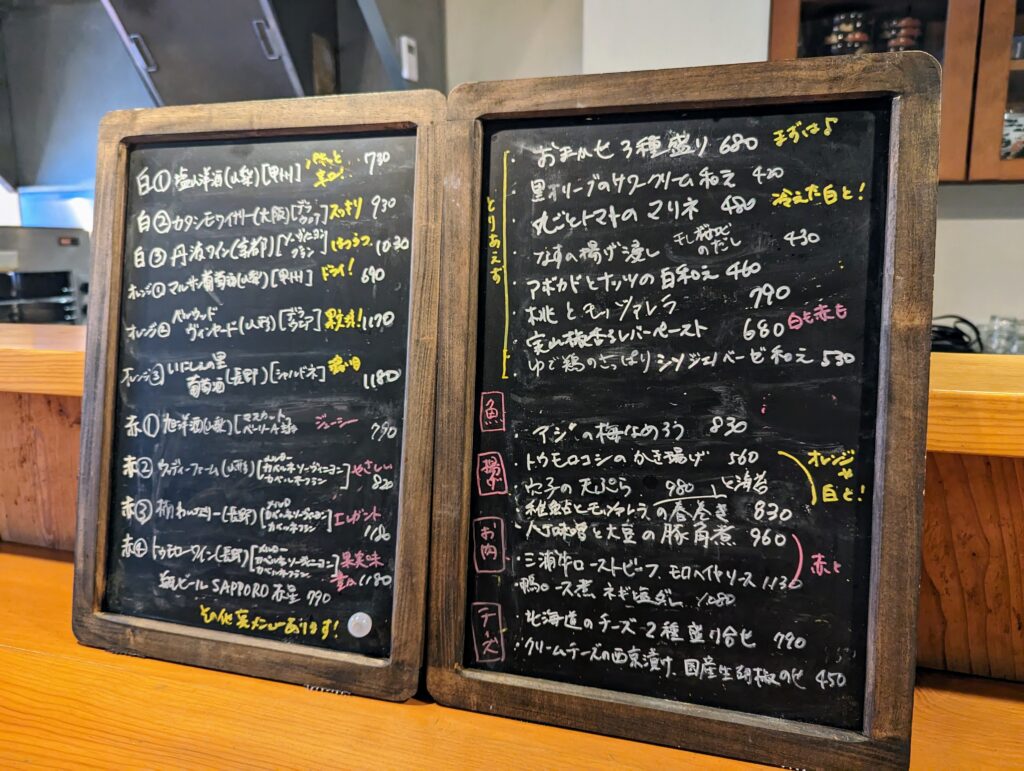 白① 塩山洋酒(山梨)[甲州] 730
白② カタシモワイナリー(大阪)[デラウェア] スッキリ 930
白③ 丹波ワイン(京都)[ソーヴィニヨンブラン] 1030
オレンジ① マルサン葡萄酒(山梨)[甲州] ドライ! 690
オレンジ② ベルウッドヴィンヤード(山形)[デラウェア] 1170
オレンジ③ いにしぇの里葡萄酒(長野)[シャルドネ] 1180
赤① 旭洋酒(山梨)[マスカットベーリーA] ジューシー 790
赤② ウッディーファーム(山形)[メルロー カベルネソーヴィニヨン カベルネフラン] やさしい 820
赤③ (長野)[メルロー カベルネソーヴィニヨン カベルネフラン] エレガント 1130
赤④ トゥモローワイン(長野)[メルロー カベルネソーヴィニヨン カベルネフラン] 果実味 1180
瓶ビール SAPPORO 赤星 790
その他裏メニューあります!
とりあえず
・おまかせ3種盛り 680 まずは♪
・黒オリーブのサワークリーム和え 420
・丸ごとトマトのマリネ 480 冷えた白と!
・なすの揚げ浸し 干し桜エビのだし 430
・アボカドとナッツの白和え 460
・桃とモッツァレラ 790
・実山椒香るレバーペースト 680 白も赤も
・ゆで鶏のさっぱりシソジェノベーゼ和え 530
魚
・アジの梅なめろう 830
揚げ
・トウモロコシのかき揚げ 560 オレンジや白と!
・穴子の天ぷら 980
・稚鮎とモッツァレラの春巻き 830
お肉
・八丁味噌と大豆の豚角煮 960 赤と
・三浦牛ローストビーフ、モロヘイヤソース 1130
・鴨ロース煮 ネギ塩ダレ 1080
チーズ
・北海道のチーズ2種盛り合せ 790
・クリームチーズの西京漬け、国産生胡椒のせ 450